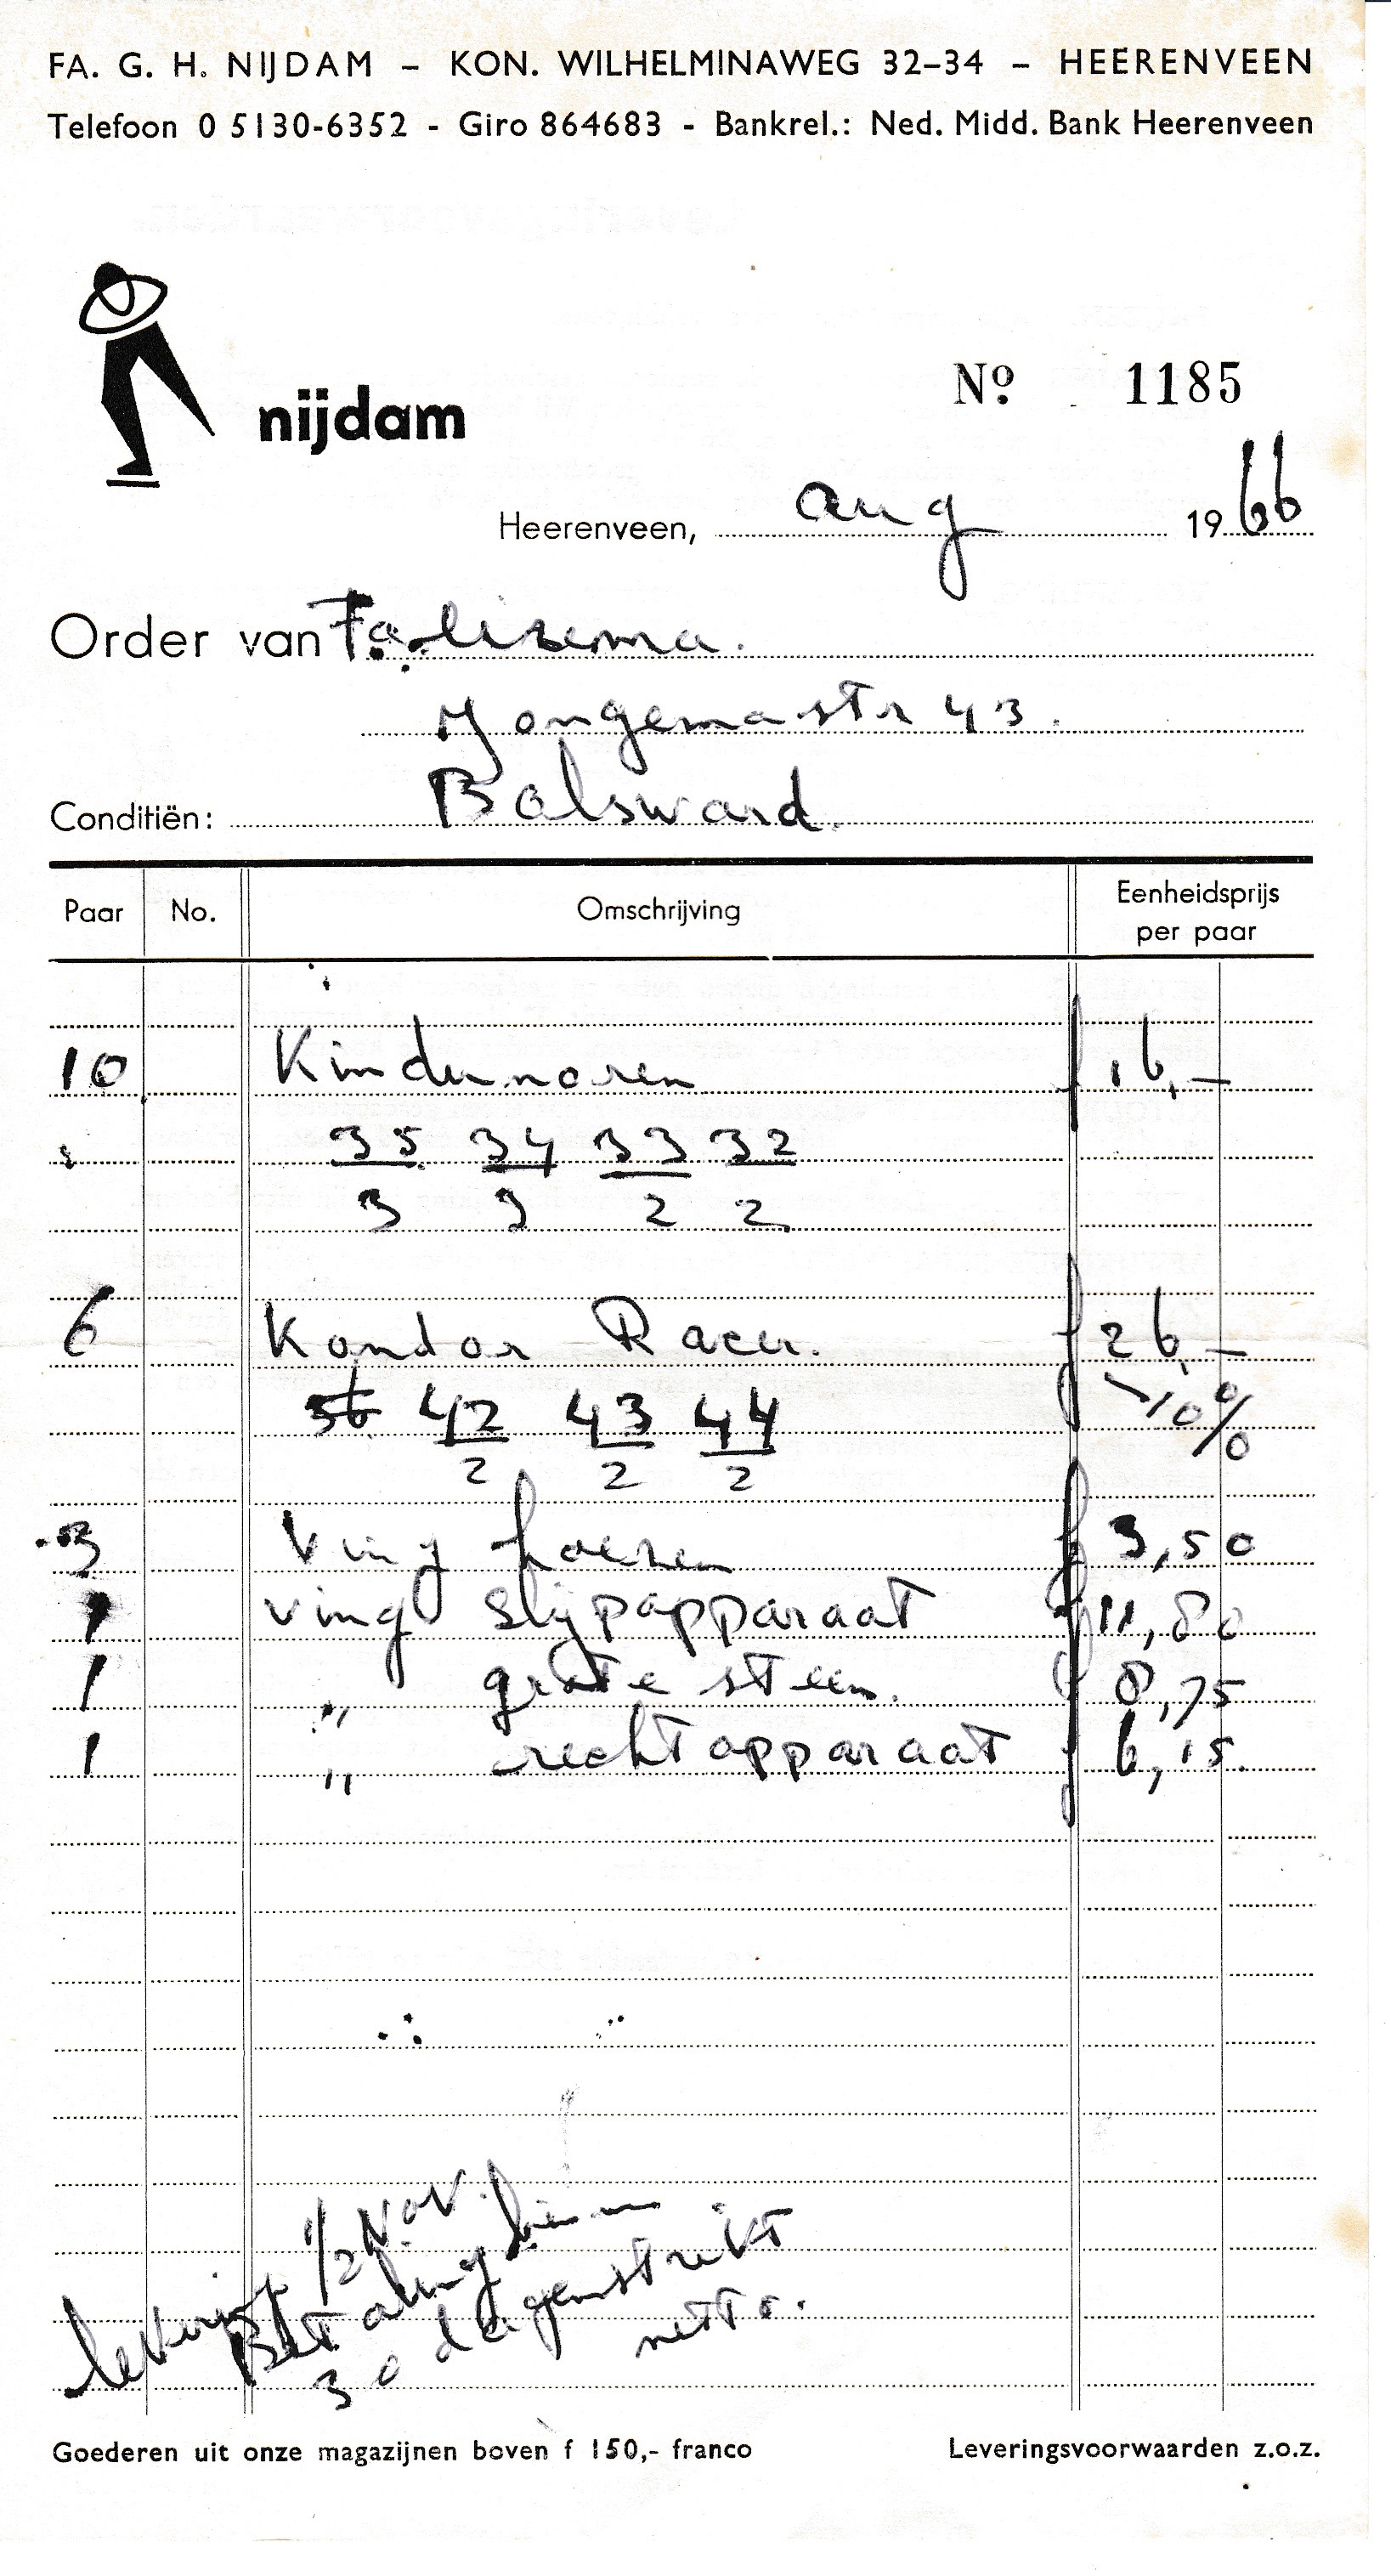 FA. G. H. NIJDAM – KON. WILHELMINAWEG 32–34 – HEERENVEEN
Telefoon 0 5130-6352 - Giro 864683 - Bankrel.: Ned. Midd. Bank Heerenveen
nijdam
Nº. 1185
Heerenveen, aug 1966
Order van Fa.
Jongemastr 43.
Bolsward.
Conditiën:
Paar No. Omschrijving Eenheidsprijs per paar
10 Kindernoren f 16,–
35 34 33 32
3 3 2 2
6 Kondor Racer. f 26,–
36 42 43 44 -10%
2 2 2
3 Ving hoezen f 3,50
1 Ving slijpapparaat f 11,80
1 „ grote steen. f 8,75
1 „ rechtapparaat f 6,15.
levering 1/2 Nov.
Betaling binnen
30 dagen strikt
netto.
Goederen uit onze magazijnen boven f 150,- franco Leveringsvoorwaarden z.o.z.